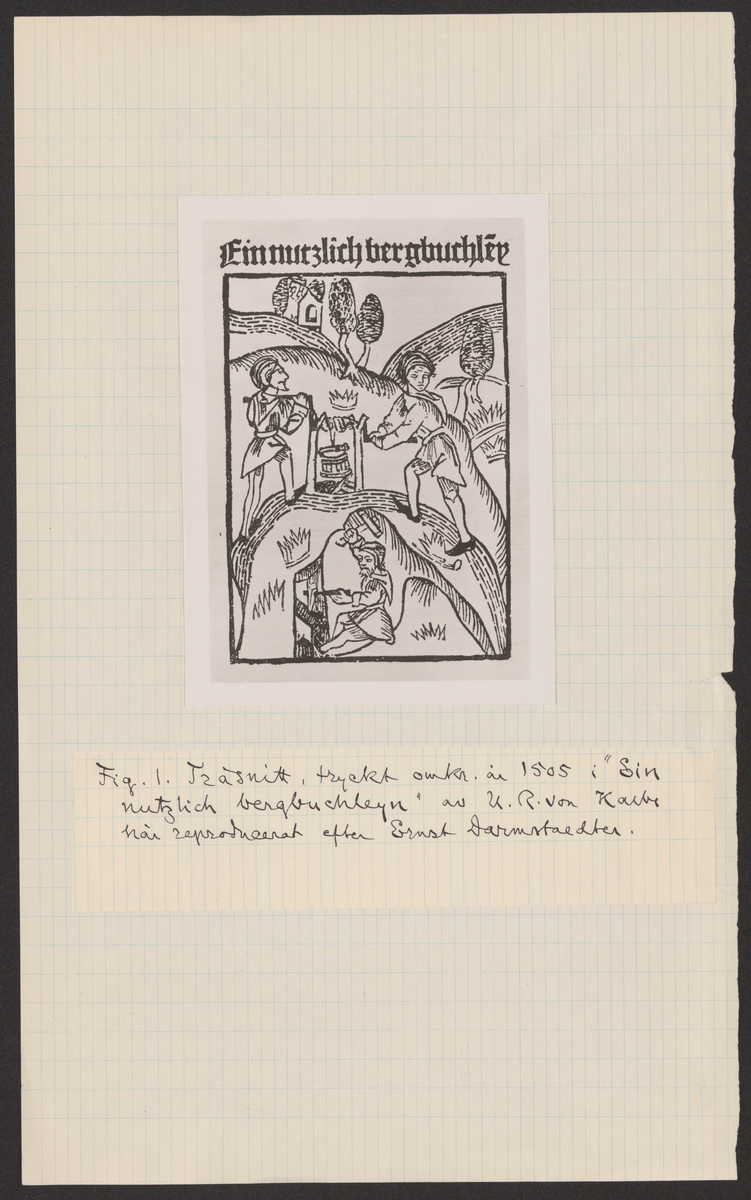 Ein nutzlich bergbuchlēy
Fig. 1. Träsnitt, tryckt omkr. år 1505 i "Ein
nutzlich bergbuchleyn" av U. R. von Kalbe
här reproducerat efter Ernst Darmstaedter.